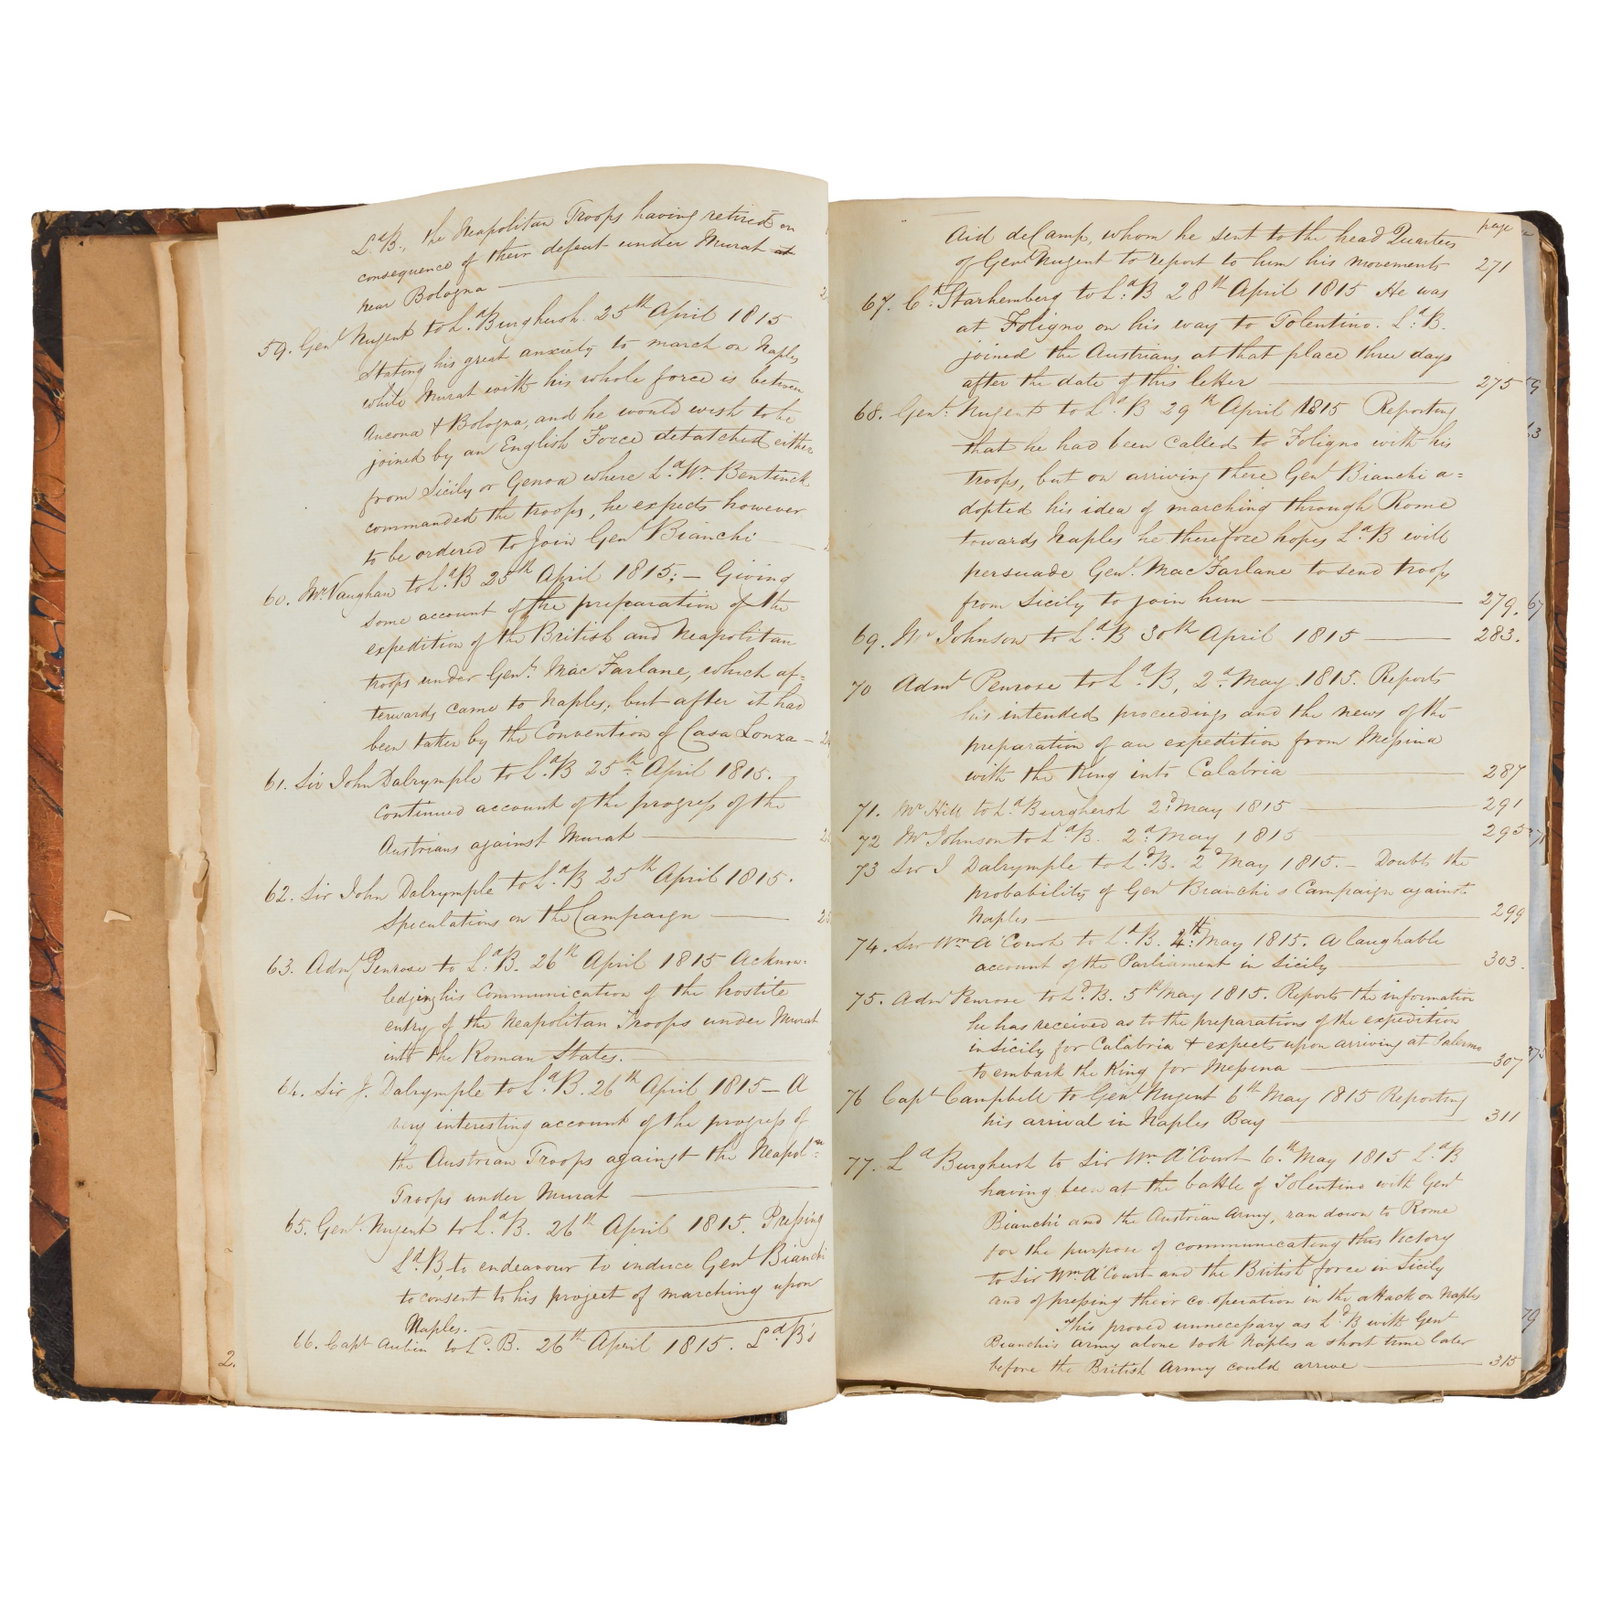 Ld. B., the Neapolitan Troops having retired on
consequence of their defeat under Murat at
near Bologna
59. Genl Nugent to Ld. Burghersh. 25th April 1815
Stating his great anxiety to march on Naples
while Murat with his whole force is between
Ancona & Bologna, and he would wish to be
joined by an English Force detatched either
from Sicily or Genoa where Ld. Wm. Bentinck
commanded the troops, he expects however
to be ordered to join Genl Bianchi
60. Mr. Vaughan to Ld. B 25th April 1815; — Giving
some account of the preparation of the
expedition of the British and Neapolitan
troops under Genl. Mac Farlane, which af=
terwards came to Naples, but after it had
been taken by the Convention of Casa Lonza —
61. Sir John Dalrymple to Ld. B 25th April 1815.
Continued account of the progress of the
Austrians against Murat
62. Sir John Dalrymple to Ld. B 25th April 1815.
Speculations on the Campaign
63. Adml Penrose to Ld. B. 26th April 1815 Acknow-
ledging his Communication of the hostile
entry of the Neapolitan Troops under Murat
into the Roman States.
64. Sir J. Dalrymple to Ld. B. 26th April 1815 — A
very interesting account of the progress of
the Austrian Troops against the Neapoln
Troops under Murat
65. Genl. Nugent to Ld. B. 26th April 1815. Pressing
Ld. B. to endeavour to induce Genl Bianchi
to consent to his project of marching upon
Naples.
66. Capt Aubin to Ld. B. 26th April 1815. Ld B's
2.
page
Aid deCamp, whom he sent to the head Quarters
of Genl Nugent to report to him his movements 271
67. Ct. Starhemberg to Ld. B 28th April 1815 He was
at Foligno on his way to Tolentino. Ld. B.
joined the Austrians at that place three days
after the date of this letter 275
68. Genl. Nugent to Ld. B 29th April 1815 Reporting
that he had been called to Foligno with his
troops, but on arriving there Genl Bianchi a=
dopted his idea of marching through Rome
towards Naples he therefore hopes Ld. B will
persuade Genl. MacFarlane to send troops
from Sicily to join him 279.
69. Mr Johnson to Ld. B 30th April 1815 283.
70 Adml Penrose to Ld. B, 2d. May 1815. Reports
his intended proceedings and the news of the
preparation of an expedition from Messina
with the King into Calabria 287
71. Mr Hill to Ld. Burghersh 2d May 1815 291
72 Mr Johnson to Ld. B. 2d May 1815 295
73 Sir J Dalrymple to Ld. B. 2d May 1815. — Doubts the
probability of Genl Bianchi s Campaign against
Naples 299
74. Sir Wm A'Court to Ld. B. 4th May 1815. A laughable
account of the Parliament in Sicily 303.
75. Adml Penrose to Ld. B. 5th May 1815. Reports the information
he has received as to the preparations of the expedition
in Sicily for Calabria & expects upon arriving at Palermo
to embark the King for Messina 307
76 Capt Campbell to Genl Nugent 6th May 1815 Reporting
his arrival in Naples Bay 311
77. Ld Burghersh to Sir Wm A'Court 6th May 1815 Ld. B
having been at the battle of Tolentino with Genl
Bianchi and the Austrian Army, ran down to Rome
for the purpose of communicating this Victory
to Sir Wm A'Court and the British force in Sicily
and of pressing their co operation in the attack on Naples
This proved unnecessary as Ld B with Genl
Bianchi's Army alone took Naples a short time later
before the British Army could arrive 315